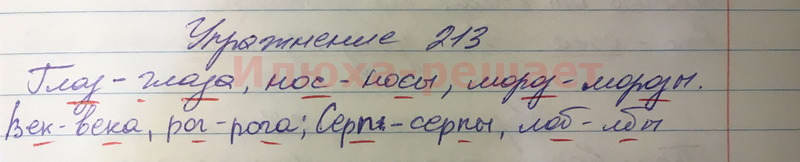 Упражнение 213
Глаз - глаза, нос - носы, морд - морды.
Век - века, рог - рога; Серп - серпы, лоб - лбы
Илюха-решает